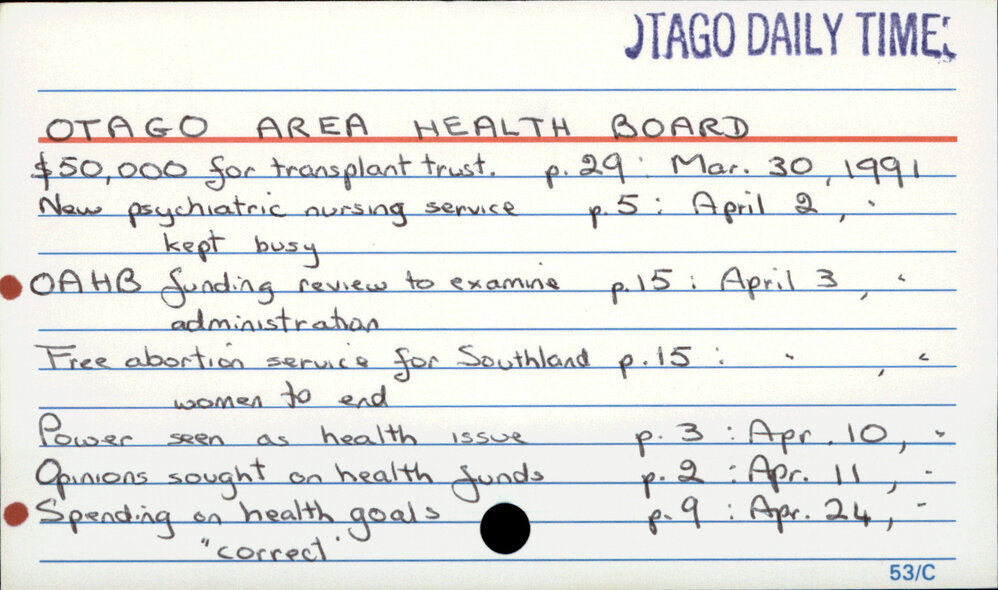 OTAGO DAILY TIMES
OTAGO AREA HEALTH BOARD
$50,000 for transplant trust. p. 29 : Mar. 30, 1991
New psychiatric nursing service p. 5 : April 2, "
kept busy
OAHB funding review to examine p. 15 : April 3, "
administration
Free abortion service for Southland p. 15 : " , "
women to end
Power seen as health issue p. 3 : Apr. 10, "
Opinions sought on health funds p. 2 : Apr. 11, "
Spending on health goals p. 9 : Apr. 24, "
"correct"
53/C